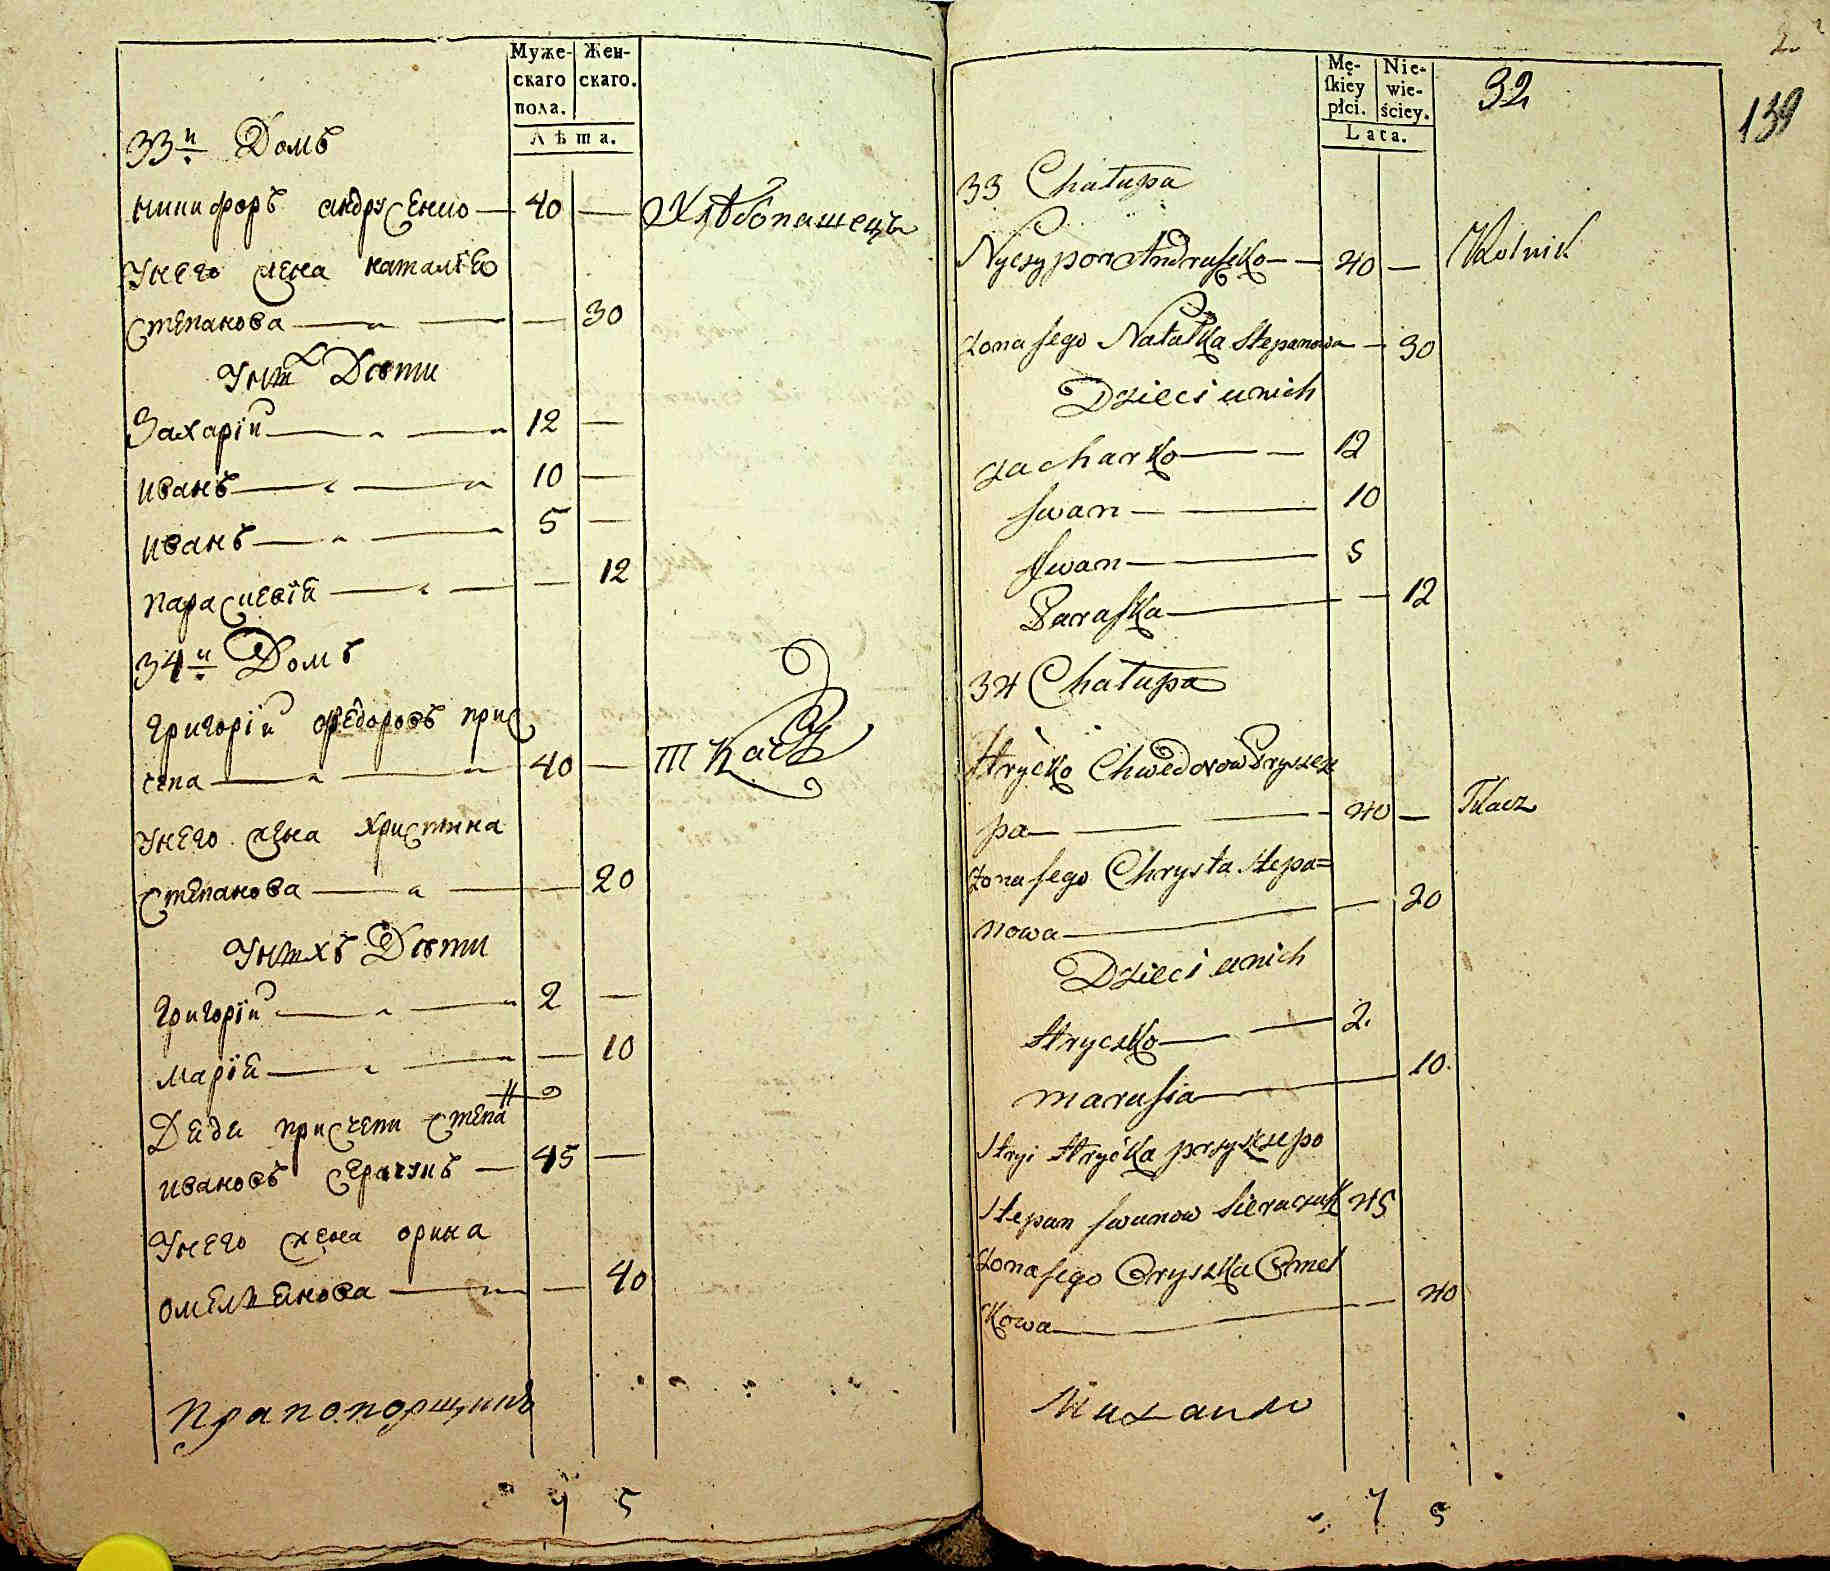 Муже-
скаго
пола.
Жен-
скаго.
Лѣта.
33й Домъ
Никифоръ Андрусенко — 40 — Хлѣбопашецъ
У него жена Наталїѧ
Степанова — 30
У нихъ Дѣти
Захарїй — 12 —
Иванъ — 10 —
Иванъ — 5 —
Параскевїѧ — 12
34й Домъ
Григорїй Федоровъ Прис
чепа — 40 — Ткачъ
У него жена Христина
Степанова — 20
У нихъ Дѣти
Григорїй — 2 —
Марїѧ — 10
Дѧдѧ Присчепи Степа
Ивановъ Серачукъ — 45 —
У него жена Орина
Омелѧнова — 40
Прапорщикъ
7 5
Mę-
ſkiey
płci.
Nie-
wie-
ściey.
Lata.
32
139
33 Chałupa
Nyczypor Andruszko — 40 — Rolnik
Zona Jego Natałka Stepanowa — 30
Dzieci u nich
Zacharko — 12
Iwan — 10
Iwan — 5
Paraska — 12
34 Chałupa
Hryćko Chwedorow Pryszcze
pa — 40 — Tkacz
Zona Jego Chrysta Stepa=
nowa — 20
Dzieci u nich
Hryczko — 2.
Marusia — 10.
Stryi Hryćka Pryszczepo
Stepan Iwanow Sieraczuk 45
Zona Jego Oryszka Omel
kowa — 40
Михаило
7 5